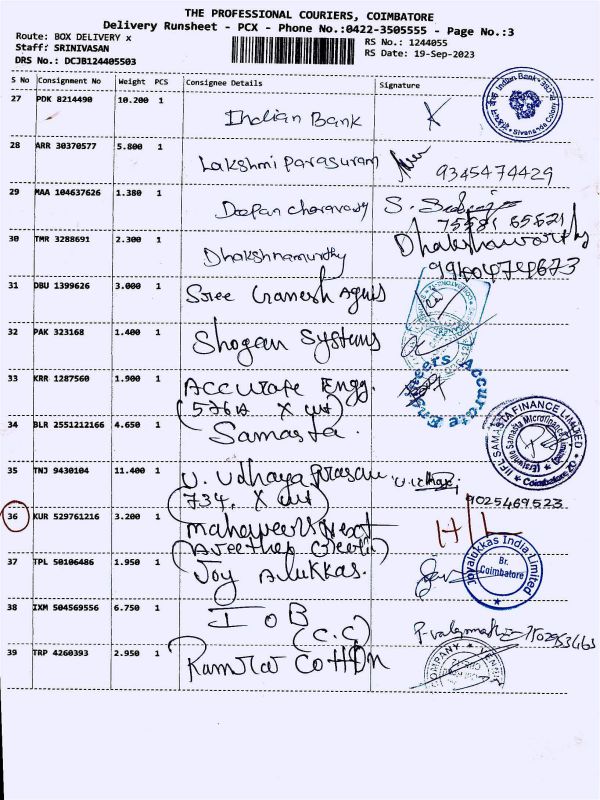 THE PROFESSIONAL COURIERS, COIMBATORE
Delivery Runsheet - PCX - Phone No.:0422-3505555 - Page No.:3
Route: BOX DELIVERY x
RS No.: 1244055
Staff: SRINIVASAN
RS Date: 19-Sep-2023
DRS No.: DCJB124405503
S No Consignment No Weight PCS Consignee Details Signature
27 PDK 8214490 10.200 1 Indian Bank
Indian Bank
Sivananda Colony
28 ARR 30370577 5.800 1 Lakshmi Parasuram
9345474429
29 MAA 104637626 1.380 1 Deepan Charavarthy S.
30 TMR 3288691 2.300 1 Dhakshnamurthy
31 DBU 1399626 3.000 1 Sree Ganesh Agns
32 PAK 323168 1.400 1 Shogan Systems
33 KRR 1287560 1.900 1 Accurate Engg.
Accurate Engineers
34 BLR 2551212166 4.650 1 Samasta.
IIFL SAMASTA FINANCE LIMITED
Samasta Microfinance Limited
Coimbatore
35 TNJ 9430104 11.400 1 U. Udhaya
734.
9025469523
36 KUR 529761216 3.200 1
37 TPL 50106486 1.950 1 Joy Alukkas.
Joyalukkas India Limited
Br.
Coimbatore
38 IXM 504569556 6.750 1 IOB
(C.C)
39 TRP 4260393 2.950 1 Ramraj Cotton